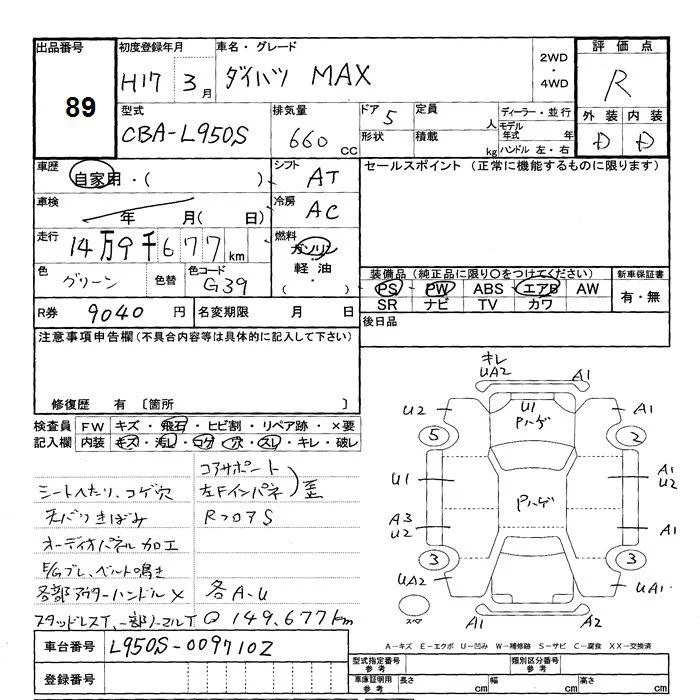 出品番号 初度登録年月 車名・グレード 2WD・4WD 評価点
89 H17 3月 ダイハツ MAX R
型式 排気量 ドア 5 定員 人 ディーラー・並行 外装 内装
CBA-L950S 660 CC 形状 積載 kg モデル年式 年 ハンドル 左・右 D D
車歴 自家用・( ) シフト AT セールスポイント (正常に機能するものに限ります)
車検 年 月( 日) 冷房 AC
走行 14万9千677km 燃料 ガソリン
色 グリーン 色替 色コード G39 軽油 ( )
装備品 (純正品に限り○をつけてください) 新車保証書
PS PW ABS エアB AW 有・無
SR ナビ TV カワ
R券 9040円 名変期限 月 日 後日品
注意事項申告欄(不具合内容等は具体的に記入して下さい)
修復歴 有 〔箇所 〕
検査員 FW キズ・飛石・ヒビ割・リペア跡・×要
記入欄 内装 キズ・汚レ・コゲ・穴・スレ・キレ・破レ
コアサポート
シートへたり、コゲ穴 左Fインパネ 歪
天バリきばみ RフロアS
オーディオパネル加工
E/Gブレ、ベルト鳴き
各部アウターハンドル× 各A-U
スタッドレスT、一部ノーマルT 149,677km
車台番号 L950S-0097102
登録番号
キレ
UA2 A1
U2 U1 A1
Pハゲ
5 2
U1 A1
U2
Pハゲ
A3 A1
U2
3 3
UA2 UA1
スペア A1 A2
A-キズ E-エクボ U-凹み W-補修跡 S-サビ C-腐食 XX-交換済
型式指定番号 参考 類別区分番号 参考
車庫証明用 参考 長さ cm 幅 cm 高さ cm